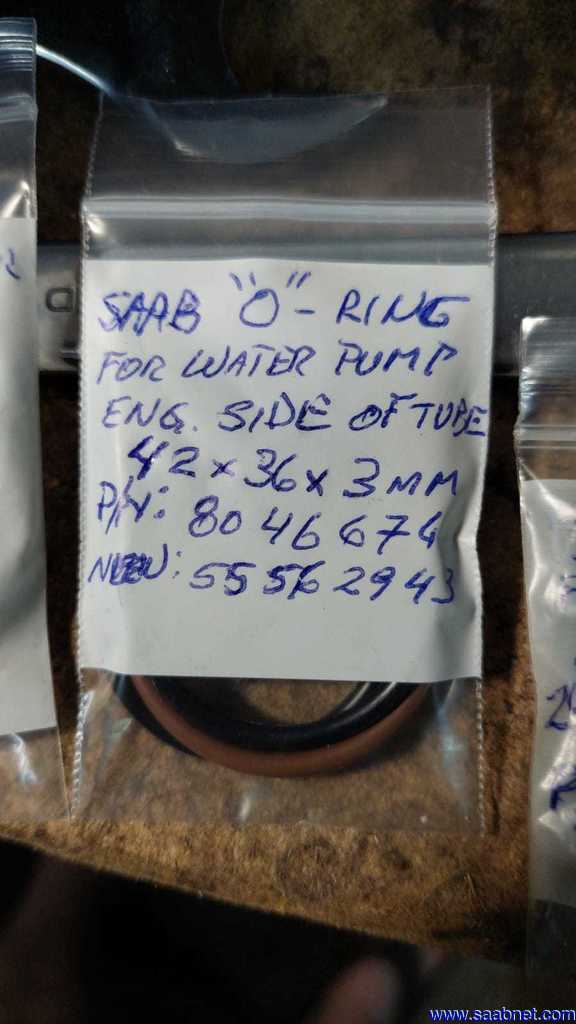 SAAB "O"- RING
FOR WATER PUMP
ENG. SIDE OF TUBE
42 x 36 x 3 MM
P/N: 8046674
NEW: 55562943
www.saabnet.com